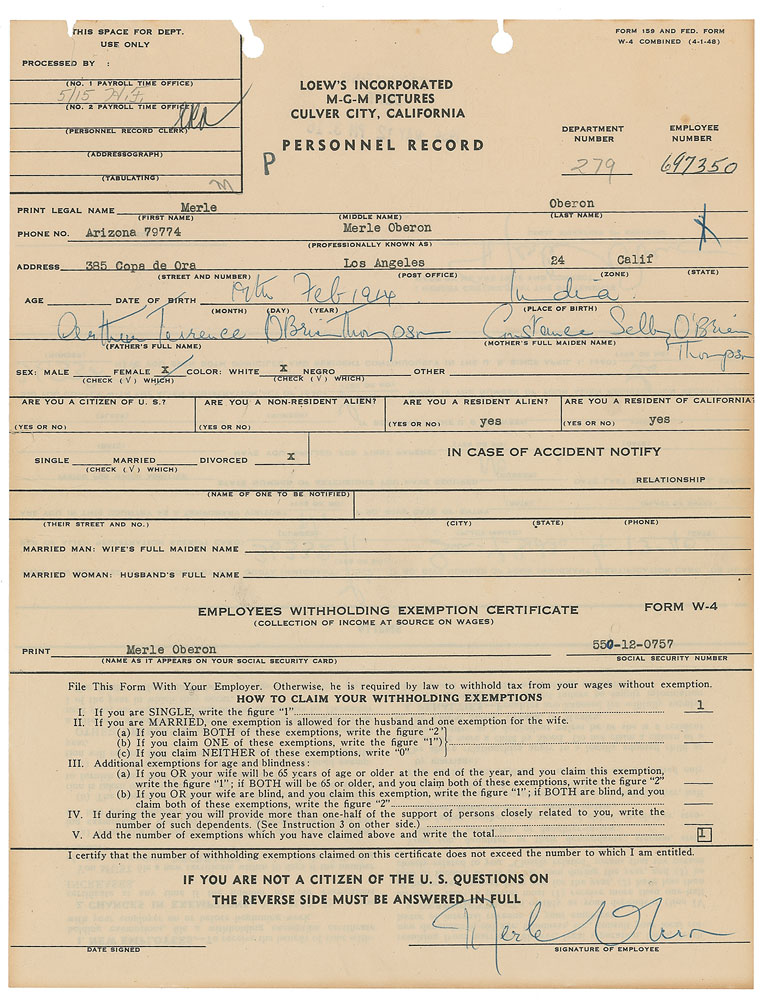 THIS SPACE FOR DEPT.
USE ONLY
PROCESSED BY :
(NO. 1 PAYROLL TIME OFFICE)
5/15 H.F.
(NO. 2 PAYROLL TIME OFFICE)
(PERSONNEL RECORD CLERK)
(ADDRESSOGRAPH)
(TABULATING)
M
FORM 159 AND FED. FORM
W-4 COMBINED (4-1-48)
LOEW'S INCORPORATED
M-G-M PICTURES
CULVER CITY, CALIFORNIA
P PERSONNEL RECORD
DEPARTMENT NUMBER 279
EMPLOYEE NUMBER 697350
PRINT LEGAL NAME Merle Oberon
(FIRST NAME) (MIDDLE NAME) (LAST NAME)
PHONE NO. Arizona 79774 Merle Oberon
(PROFESSIONALLY KNOWN AS)
ADDRESS 385 Copa de Ora Los Angeles 24 Calif
(STREET AND NUMBER) (POST OFFICE) (ZONE) (STATE)
AGE DATE OF BIRTH 19th Feb India
(MONTH) (DAY) (YEAR) (PLACE OF BIRTH)
Arthur Terrence O'Brien Thompson Constance Selby O'Brien
Thompson
(FATHER'S FULL NAME) (MOTHER'S FULL MAIDEN NAME)
SEX: MALE FEMALE X COLOR: WHITE X NEGRO OTHER
(CHECK (√) WHICH) (CHECK (√) WHICH)
ARE YOU A CITIZEN OF U. S.? ARE YOU A NON-RESIDENT ALIEN? ARE YOU A RESIDENT ALIEN? ARE YOU A RESIDENT OF CALIFORNIA?
(YES OR NO) (YES OR NO) (YES OR NO) yes (YES OR NO) yes
SINGLE MARRIED DIVORCED X
(CHECK (√) WHICH)
IN CASE OF ACCIDENT NOTIFY
RELATIONSHIP
(NAME OF ONE TO BE NOTIFIED)
(THEIR STREET AND NO.) (CITY) (STATE) (PHONE)
MARRIED MAN: WIFE'S FULL MAIDEN NAME
MARRIED WOMAN: HUSBAND'S FULL NAME
EMPLOYEES WITHHOLDING EXEMPTION CERTIFICATE FORM W-4
(COLLECTION OF INCOME AT SOURCE ON WAGES)
PRINT Merle Oberon 550-12-0757
(NAME AS IT APPEARS ON YOUR SOCIAL SECURITY CARD) SOCIAL SECURITY NUMBER
File This Form With Your Employer. Otherwise, he is required by law to withhold tax from your wages without exemption.
HOW TO CLAIM YOUR WITHHOLDING EXEMPTIONS
I. If you are SINGLE, write the figure "1" 1
II. If you are MARRIED, one exemption is allowed for the husband and one exemption for the wife.
(a) If you claim BOTH of these exemptions, write the figure "2"
(b) If you claim ONE of these exemptions, write the figure "1")
(c) If you claim NEITHER of these exemptions, write "0"
III. Additional exemptions for age and blindness:
(a) If you OR your wife will be 65 years of age or older at the end of the year, and you claim this exemption,
write the figure "1"; if BOTH will be 65 or older, and you claim both of these exemptions, write the figure "2"
(b) If you OR your wife are blind, and you claim this exemption, write the figure "1"; if BOTH are blind, and you
claim both of these exemptions, write the figure "2"
IV. If during the year you will provide more than one-half of the support of persons closely related to you, write the
number of such dependents. (See Instruction 3 on other side.)
V. Add the number of exemptions which you have claimed above and write the total 1
I certify that the number of withholding exemptions claimed on this certificate does not exceed the number to which I am entitled.
IF YOU ARE NOT A CITIZEN OF THE U. S. QUESTIONS ON
THE REVERSE SIDE MUST BE ANSWERED IN FULL
Merle Oberon
DATE SIGNED SIGNATURE OF EMPLOYEE